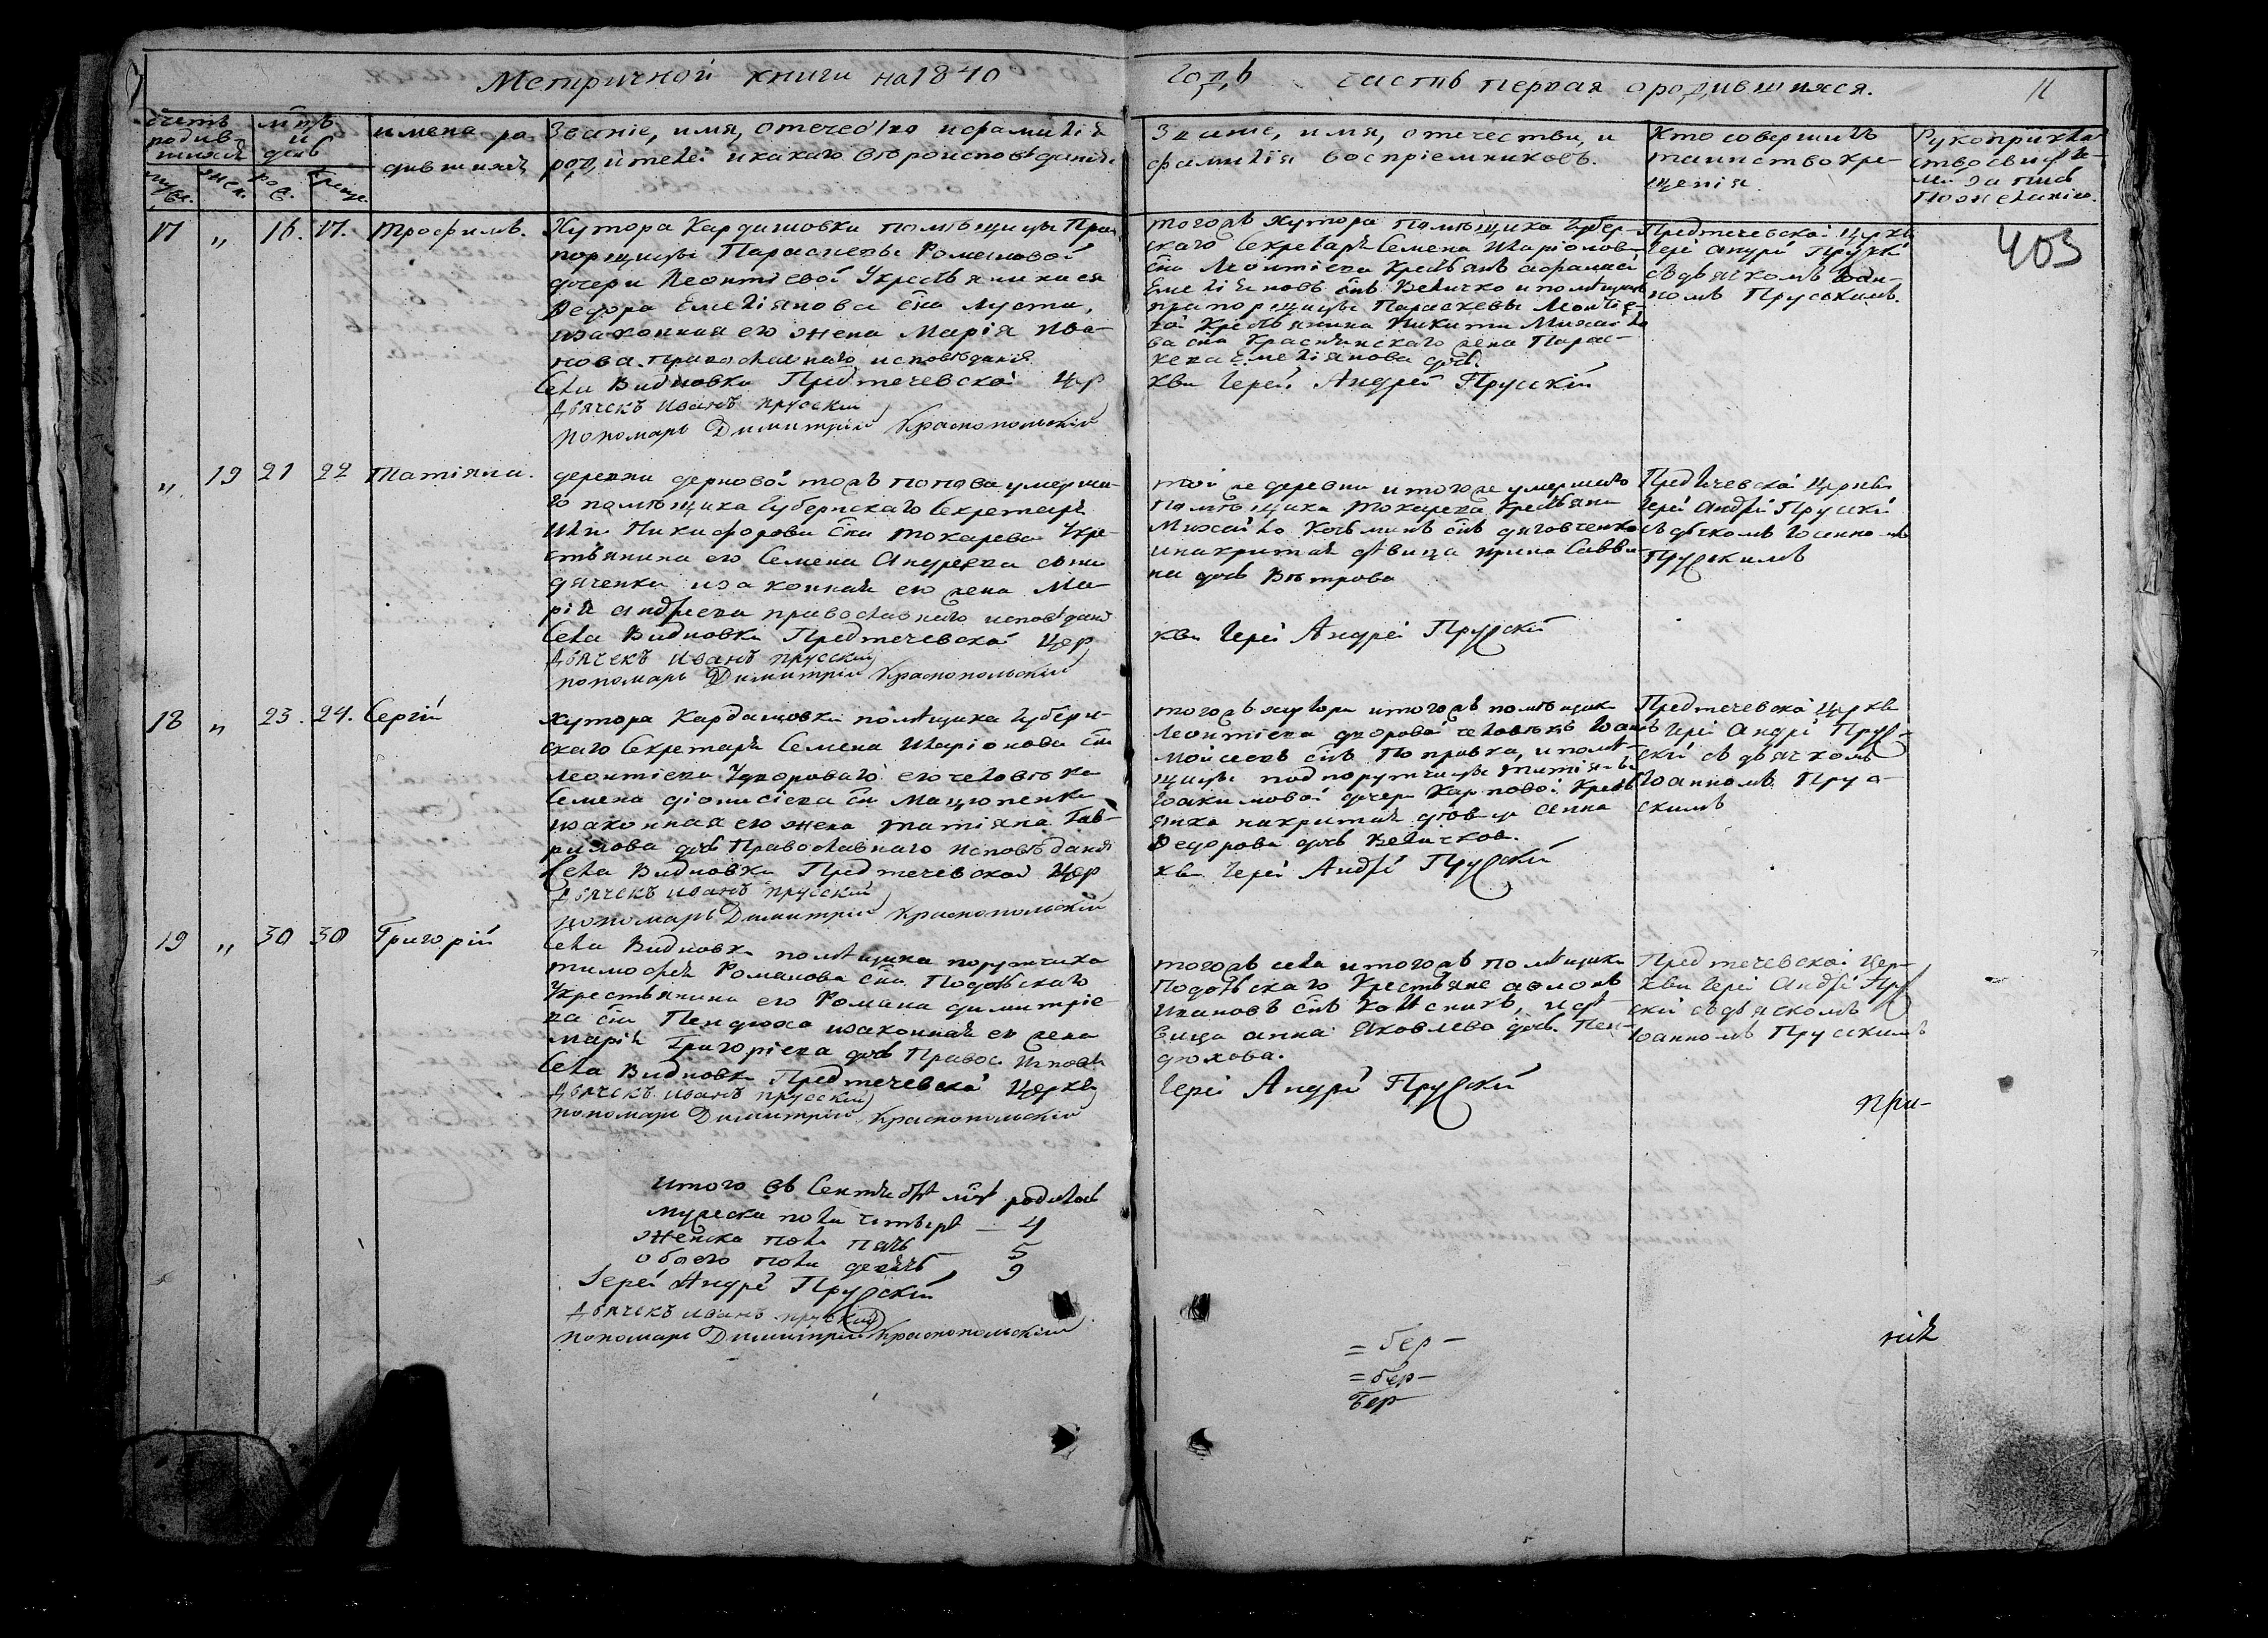 Метричной книги на 1840
годъ часть первая о родившихся.
11
403
счетъ родив-шихся
муж.
жен.
мць и день
рож.
крещ.
имена ро
дившихся
Званіе, имя, отечество и фамилія
родителей и какого вѣроисповѣданія
Званіе, имя, отечество, и
фамилія воспріемниковъ.
Кто совершилъ
таинство кре-
щенія
Рукоприклад
ство свидѣте-
лей записи
по желанію.
17 " 16. 17. Трофимъ.
Хутора Кардашовки помѣщицы Пра
порщицы Параскевы Романовой
дочери Леонтіевой Укрестьянина ея
Ѳедора Емеліянова сна
изаконная его жена Марія Ива-
нова православнаго исповѣданія
Села Видновки Предтечевской Цер
Дьячекъ Иванъ Прусскій
пономарь Димитрій Краснопольскій
тогожъ хутора помѣщика Губер-
скаго Секретаря Семена Иларіонов-
сна Леонтіева крестьянъ
Емеліяновъ снъ Величко и помѣщицы
прапорщицы Параскевы Леонтіе-
вой крестьянина Никиты Михайло
ва сна жена Парас-
кева Емеліянова дочь.
кви Іерей Андрей Прусскій
Предтечевской церкви
Іерей Андрей Прускій
съ дьячкомъ Іоан-
номъ Прускимъ.
" 19 21 22 Татіяна.
деревни умерша-
го помѣщика Губернскаго Секретаря
Никифорова сна Токарева Укре-
стьянина его Семена Андреева сына
дяченка изаконная его жена Ма-
рія Андреева православнаго исповѣданія
Села Видновки Предтечевской Цер
Дьячекъ Иванъ Прусскій
пономарь Димитрій Краснопольскій
той же деревни и того же умершаго
помѣщика Токарева крестьяни
Михайло Козьминъ снъ
дѣвица Ирина Савви-
на дочь Вѣтрова
кви Іерей Андрей Прускій
Предтечевской Церкви
Іерей Андрей Прускій
съ дьячкомъ Іоанномъ
Прускимъ
18 " 23. 24. Сергій
хутора Кардашовки помѣщика Губерн-
скаго Секретаря Семена Иларіонова сна
Леонтіева Удвороваго его человѣка
Семена Діонисіева сна Мацюпенки
изаконная его жена Татіяна Гав-
рилова дочь Православнаго исповѣданія
Села Видновки Предтечевской Цер
Дьячекъ Иванъ Прусскій
пономарь Димитрій Краснопольскій
тогожъ хутора итогожъ помѣщика
Леонтіева дворовой человѣкъ Іоанъ
Моисеевъ снъ Поправка, и помѣ-
щицы подпоручицы Татіяны
Іоакимовой дочери Карповой Крест
янка Анна
Ѳедорова дочь Величкова.
кви Іерей Андрей Прускій
Предтечевской Церкви
Іерей Андрей Прус-
скій съ дьячкомъ
Іоанномъ Прус-
скимъ
19 " 30 30 Григорій
Села Видновки помѣщика поручика
Тимофея Романова сна Подольскаго
Укрестьянина его Романа Димитріе-
ва сна Пендюха изаконная его жена
Марія Григоріева дочь Правос. Исповѣ
Села Видновки Предтечевской Церкви
Дьячекъ Иванъ Прусскій
пономарь Димитрій Краснопольскій
тогожъ села итогожъ помѣщика
Подольскаго Крестьяне
Ивановъ снъ и дѣ-
вица Анна Яковлева дочь Пен-
дюхова.
Іерей Андрей Прускій
Предтечевской Цер-
кви Іерей Андрей Пру
скій съ дьячкомъ
Іоанномъ Прусскимъ
при-
Итого въ Сентябрѣ мцѣ родилось
мужеска пола четыре — 4
женска пола пять 5
обоего пола девять 9
Іерей Андрей Прускій
Дьячекъ Иванъ Прускій
пономарь Димитрій Краснопольскій
= бер-
= бер-
Бер
нія